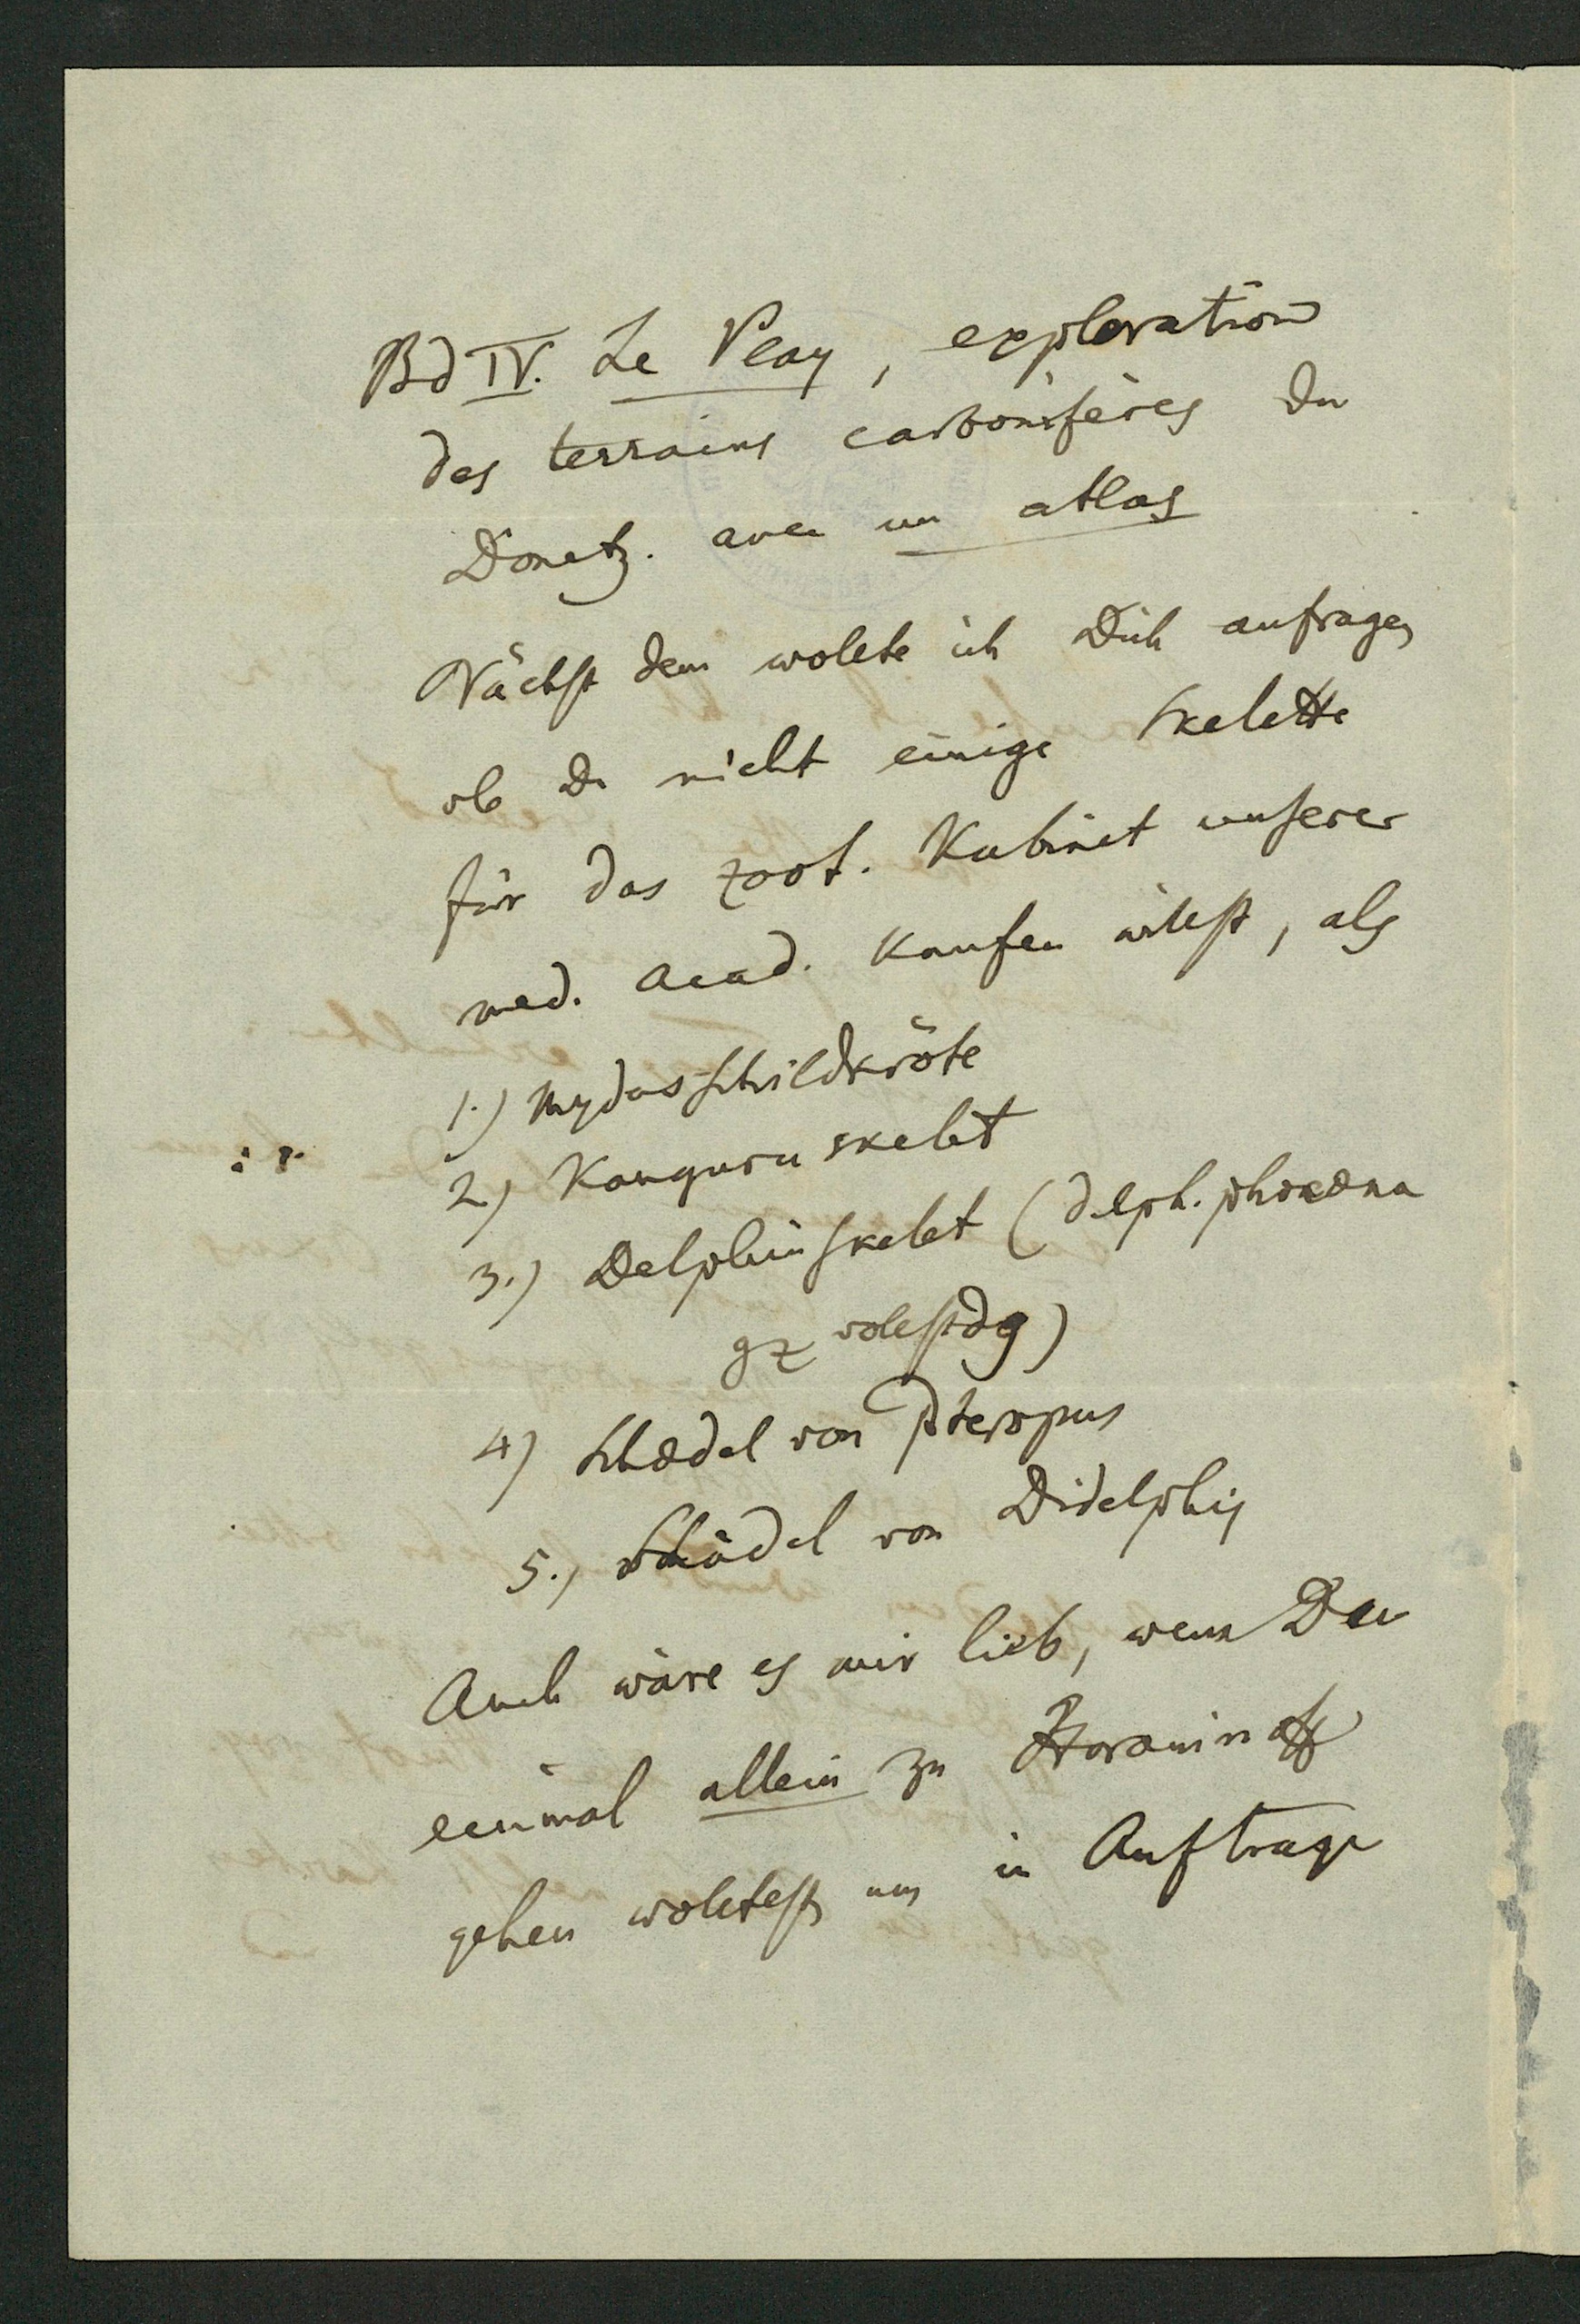 Bd IV. Le Play, exploration
des terrains carbonifères du
Donetz. avec un atlas
Nächst dem wollte ich Dich anfragen
ob Du nicht einige Skelette
für das zoot. Kabinet unserer
med. Acad. kaufen willst, als
1.) Mydasschildkröte
2) Kanguruskelet
3.) Delphinskelet (Delph. phocaena
4) Schædel von Pteropus
5.) Schädel von Didelphis
Auch wäre es mir lieb, wenn Du
einmal allein zu Horaninoff
gehen wolltest um in Auftrage